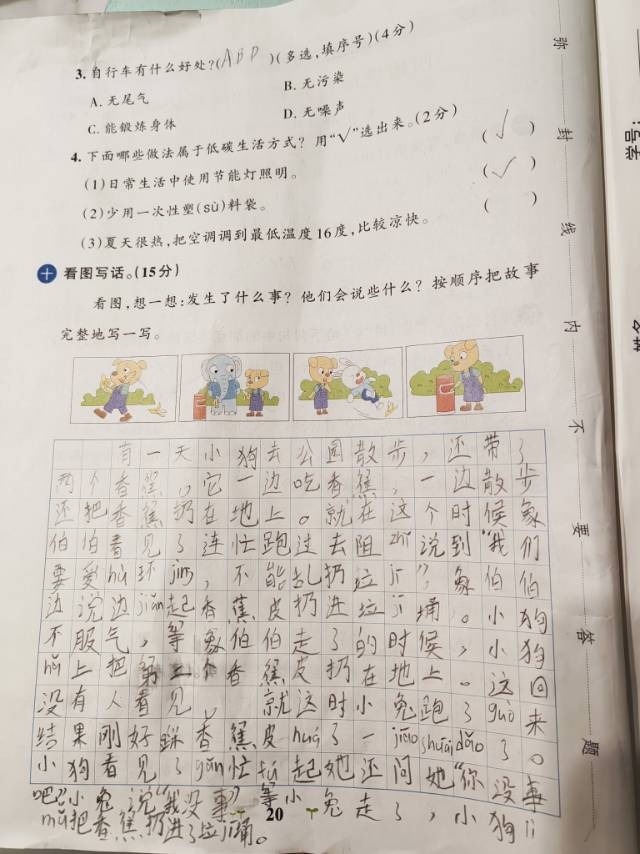 3. 自行车有什么好处?(ABD)(多选,填序号)(4分)
A. 无尾气 B. 无污染
C. 能锻炼身体 D. 无噪声
4. 下面哪些做法属于低碳生活方式? 用“√”选出来。(2分)
(1)日常生活中使用节能灯照明。 (√)
(2)少用一次性塑(sù)料袋。 (√)
(3)夏天很热,把空调调到最低温度16度,比较凉快。 ( )
十 看图写话。(15分)
看图,想一想:发生了什么事? 他们会说些什么? 按顺序把故事
完整地写一写。
有一天小狗去公园散步,还带了
两个香蕉,它一边吃香蕉,一边散步
还把香蕉扔在地上。就在这个时候象
伯伯看见了连忙跑过去阻zhǐ说到“我们
要爱hù环jìng,不能乱扔垃jī”,象伯伯
边说边jiǎn起香蕉皮扔进垃jī桶。小狗
不服气,等象伯伯走了的时候,小狗
mǎ上把第二个香蕉皮扔在地上。这回
没有人看见,就这时小兔跑了guò来
结果刚好踩香蕉皮huá了一jiāo shuāi dǎo了。
小狗看见了gǎn忙fú起她还问她“你没事
吧?”小兔说“我没事”等小兔走了,小狗
mǎ把香蕉扔进了垃jī桶。
20
弥封线内不要答题
学号: